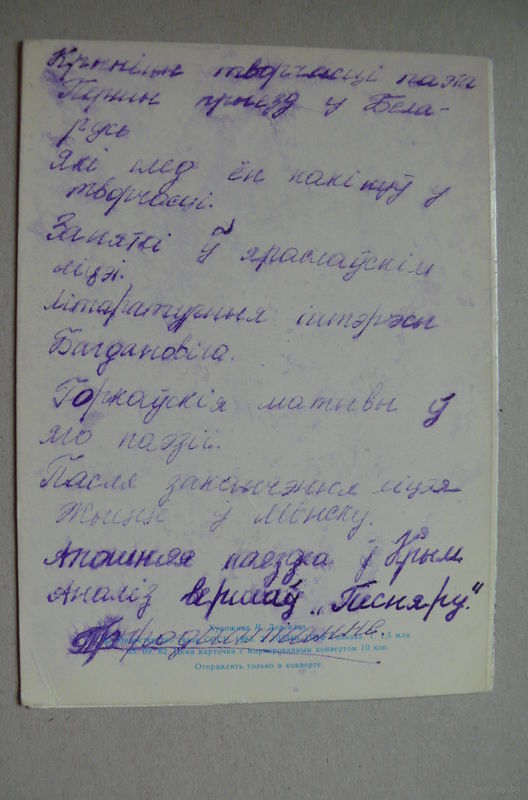 Крыніцы творчасці паэта
Першы прыезд у Бела-
русь
Які след ён пакінуў у
творчасці.
Заняткі ў яраслаўскім
ліцэі.
Літаратурныя інтэрэсы
Багдановіча.
Горкаўскія матывы ў
яго паэзіі.
Пасля заканчэння ліцэя
Жыццё у Мінску.
Апошняя паездка ў Крым
Аналіз вершаў „Песняру".
Художник И. Дергилев
03. 09. 82. Цена карточки с маркированным конвертом 10 коп.
Отправлять только в конверте.